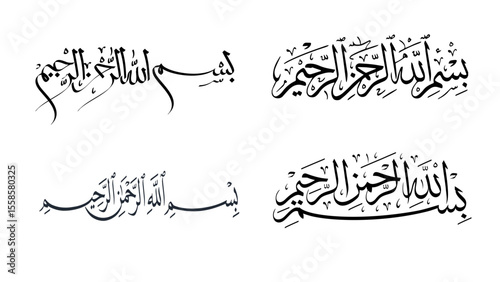 بسم الله الرحمن الرحيم
بِسْمِ اللهِ الرَّحْمٰنِ الرَّحِيْمِ
بِسْمِ ٱللَّهِ ٱلرَّحْمَٰنِ ٱلرَّحِيمِ
بسم الله الرحمن الرحيم
Adobe Stock | #1558580325